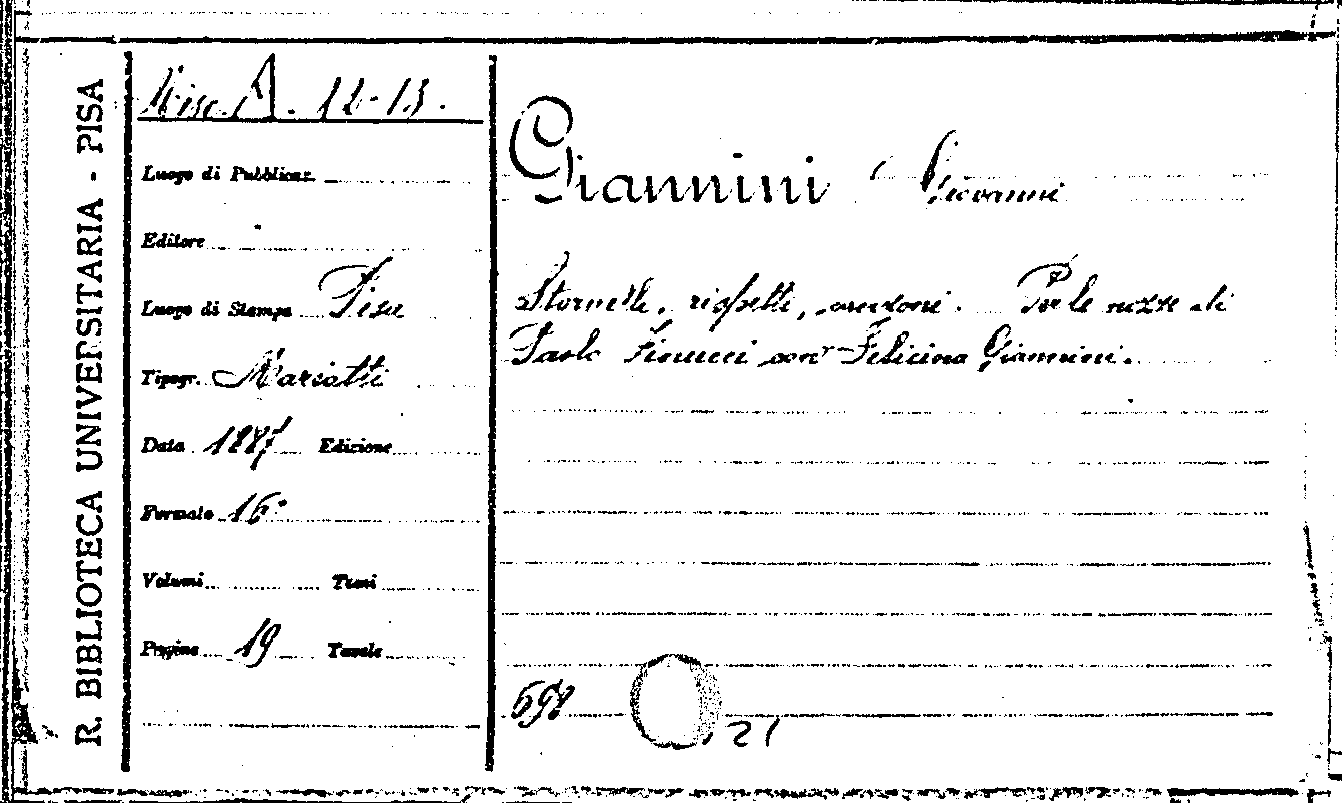 R. BIBLIOTECA UNIVERSITARIA - PISA
Misc. A. 12-13.
Luogo di Pubblicaz.
Editore
Luogo di Stampa Pisa
Tipogr. Mariotti
Data 1887 Edizione
Formato 16°
Volumi Tomi
Pagine 19 Tavole
Giannini Giovanni
Stornelli, rispetti, canzoni. Per le nozze di
Paolo Finucci con Felicina Giannini.
698
21